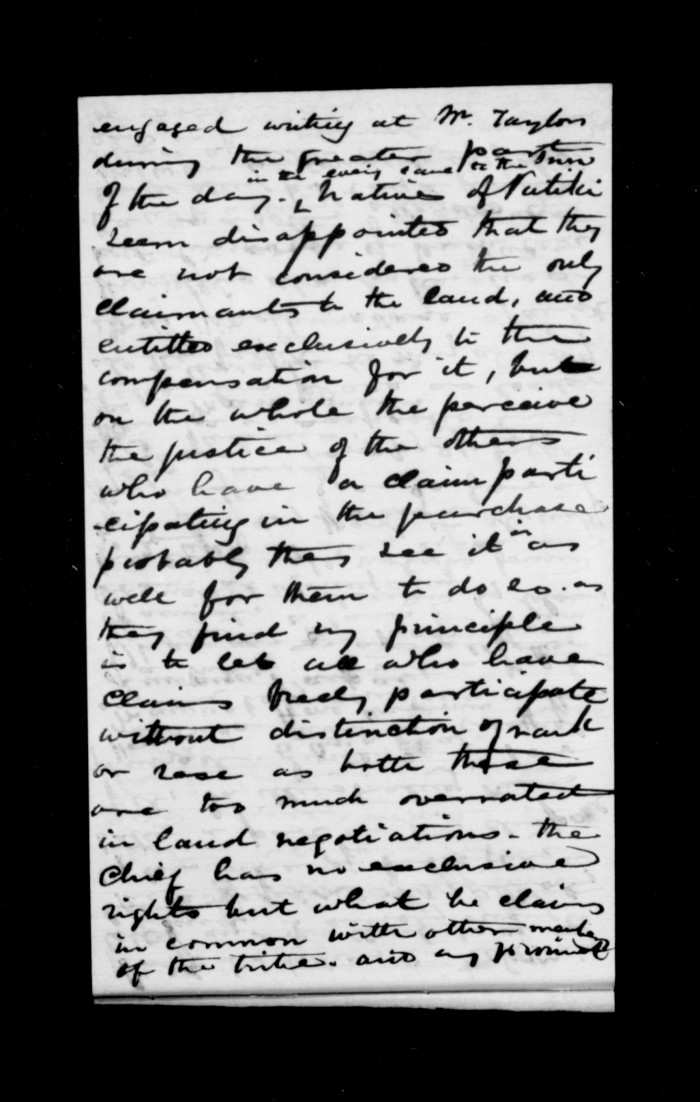 engaged writing at Mr. Taylors
during the greater part
in the evening came to the Inn
of the day. Natives of Putiki
seem disappointed that they
are not considered the only
claimants to the land, and
entitled exclusively to the
compensation for it, but
on the whole the perceive
the justice of the others
who have a claim parti
cipating in the purchase
probably they see it is as
well for them to do so. as
they find my principle
is to let all who have
claims freely participate
without distinction of rank
or rase as both these
are too much overrated
in land negotiations. the
chief has no exclusive
rights but what he claims
in common with other
of the tribe. and my